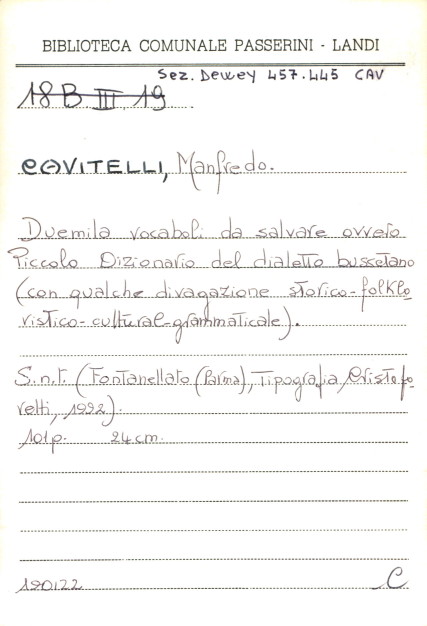 BIBLIOTECA COMUNALE PASSERINI - LANDI
Sez. Dewey 457.445 CAV
18 B III 19
CAVITELLI, Manfredo.
Duemila vocaboli da salvare ovvero
Piccolo Dizionario del dialetto buscetano
(con qualche divagazione storico-folklo
ristico-cultural-grammaticale).
S.n.t. (Fontanellato (Parma), Tipografia Cristofo
retti, 1992).
101p. 24cm.
190122 C